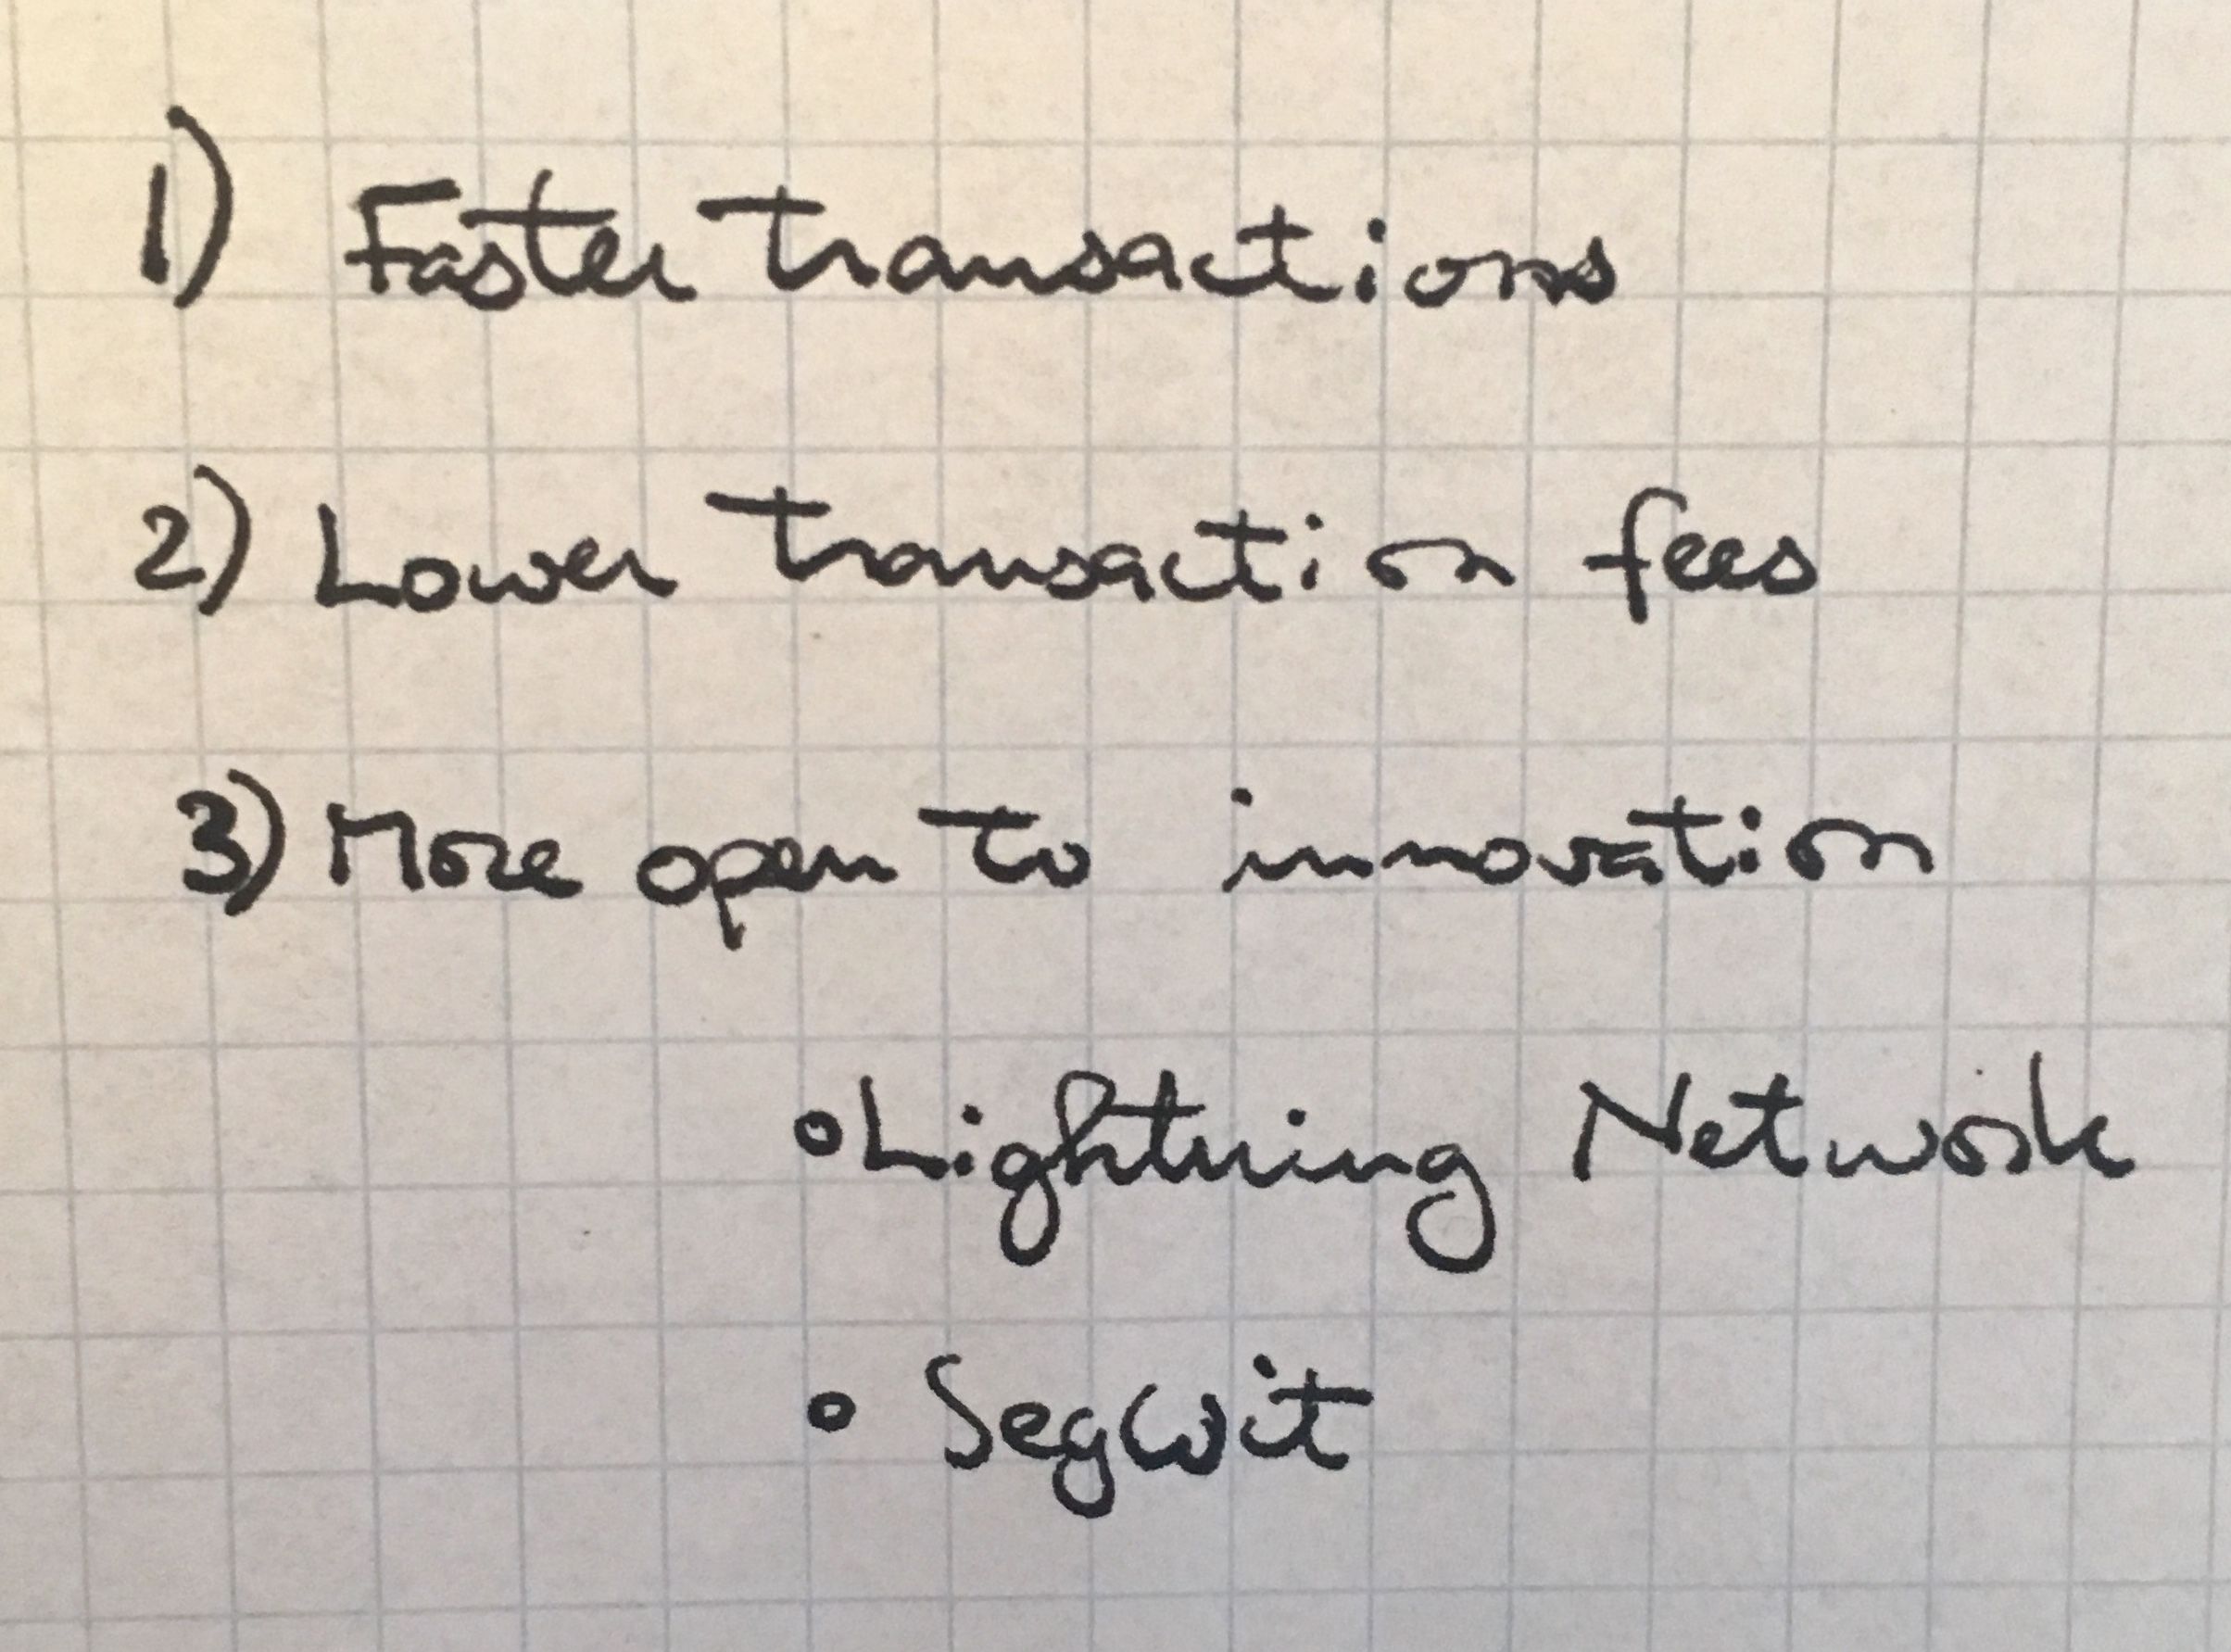 1) Faster transactions
2) Lower transaction fees
3) More open to innovation
• Lightning Network
• Segwit